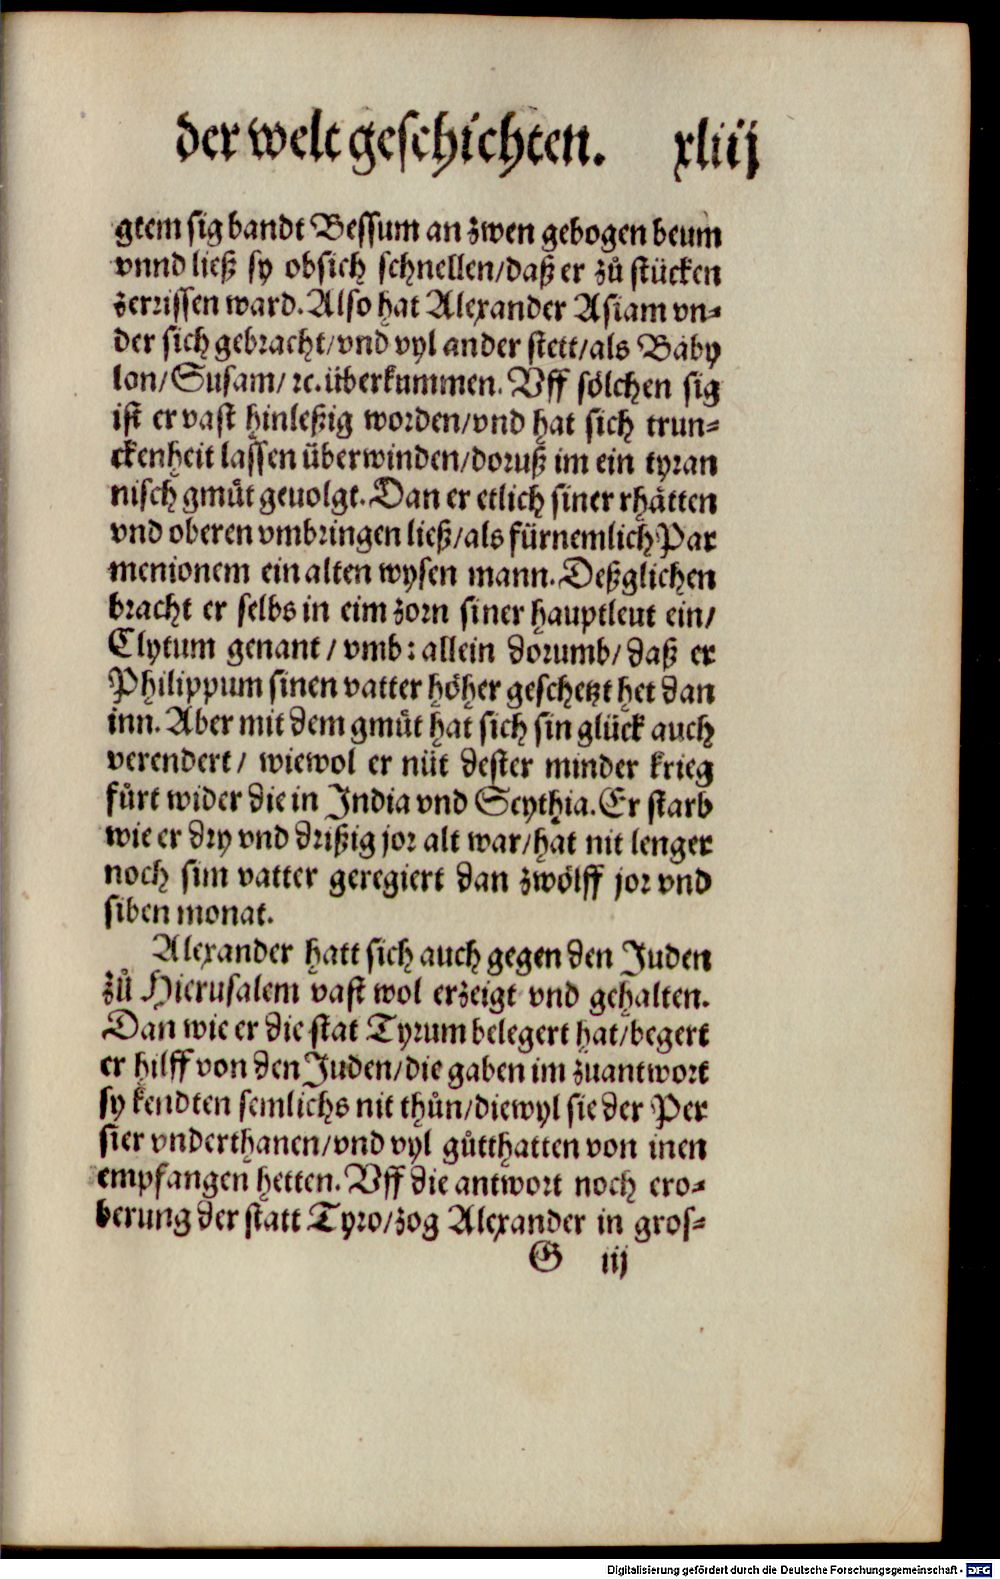 der welt geschichten. xliij
gtem sig bandt Bessum an zwen gebogen beum
vnnd ließ sy obsich schnellen/daß er zů stücken
zerrissen ward. Also hat Alexander Asiam vn⸗
der sich gebracht/vnd vyl ander stett/als Baby
lon/Susam/ ꝛc. überkummen. Vff sölchen sig
ist er vast hinleßig worden/vnd hat sich trun⸗
ckenheit lassen überwinden/doruß im ein tyran
nisch gmůt geuolgt. Dan er etlich siner rhätten
vnd oberen vmbringen ließ/als fürnemlich Par
menionem ein alten wysen mann. Deßglichen
bracht er selbs in eim zorn siner hauptleut ein/
Clytum genant / vmb: allein dorumb/ daß er
Philippum sinen vatter höher geschetzt het dan
inn. Aber mit dem gmůt hat sich sin glück auch
verendert/ wiewol er nüt dester minder krieg
fůrt wider die in India vnd Scythia. Er starb
wie er dry vnd drißig jor alt war/hat nit lenger
noch sim vatter geregiert dan zwölff jor vnd
siben monat.
Alexander hatt sich auch gegen den Juden
zů Hierusalem vast wol erzeigt vnd gehalten.
Dan wie er die stat Tyrum belegert hat/begert
er hilff von den Juden/die gaben im zuantwort
sy kendten semlichs nit thůn/diewyl sie der Per
sier vnderthanen/vnd vyl gůtthatten von inen
empfangen hetten. Vff die antwort noch ero⸗
berung der statt Tyro/zog Alexander in gros⸗
G iij
Digitalisierung gefördert durch die Deutsche Forschungsgemeinschaft - DFG